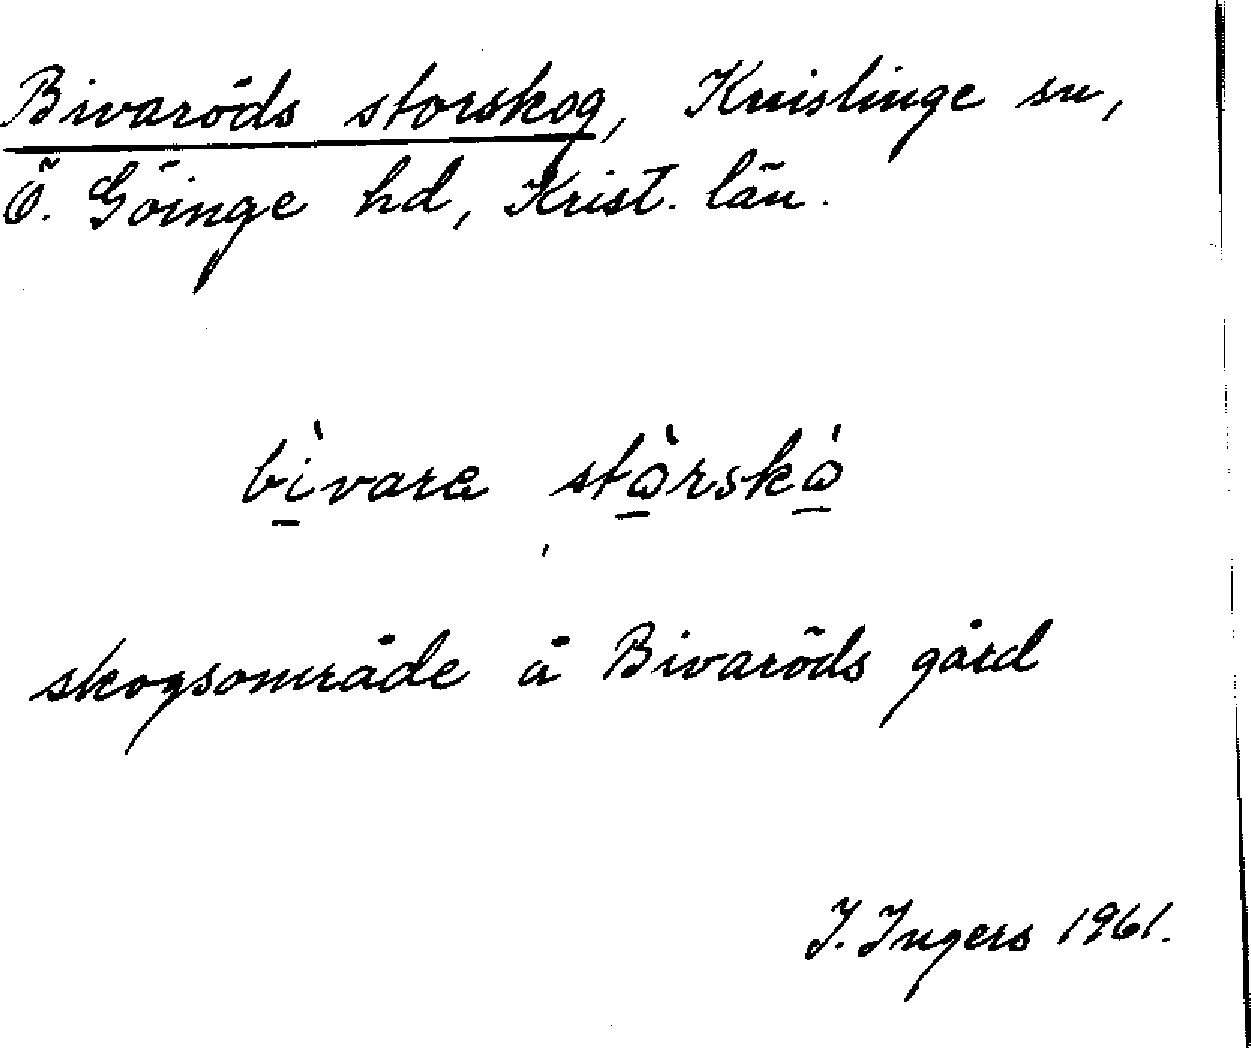 Bivaröds storskog, Knislinge sn,
Ö. Göinge hd, Krist. län.
bì̱vara stå̱̀rskǻ̱
skogsområde å Bivaröds gård
I. Ingers 1961.